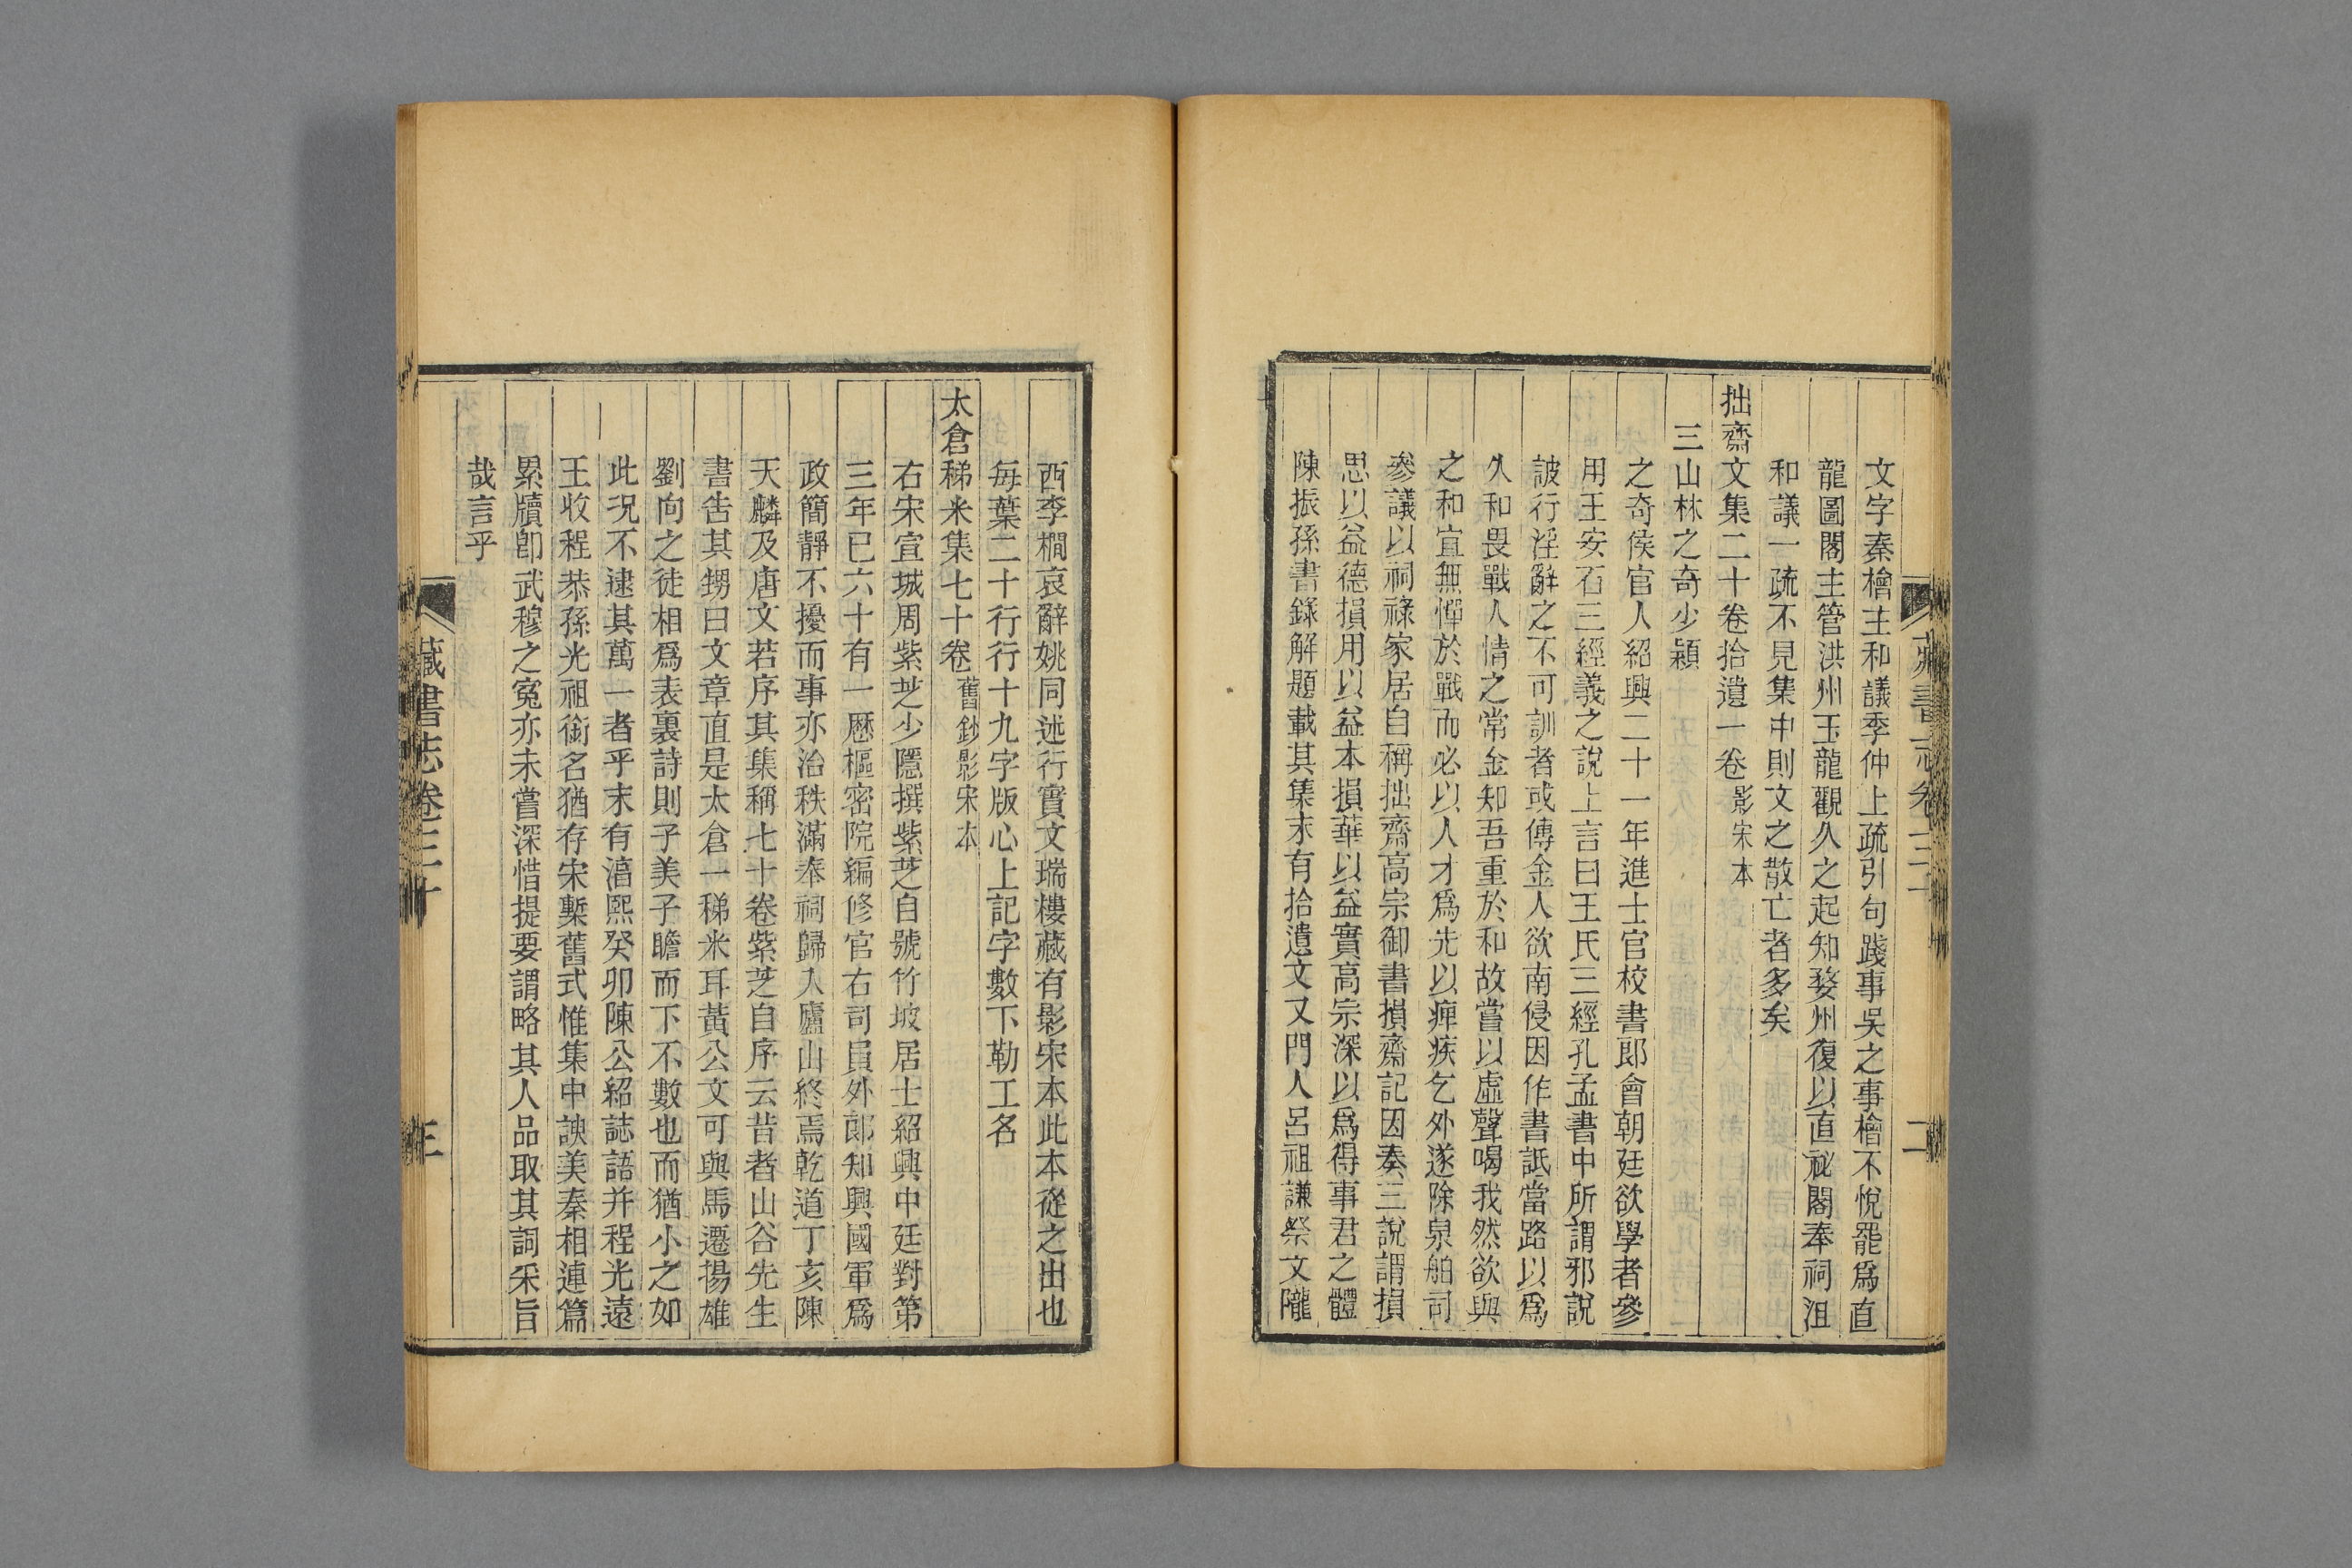 文字秦檜主和議季仲上疏引句踐事吳之事檜不悅罷爲直
龍圖閣主管洪州玉龍觀久之起知婺州復以直祕閣奉祠沮
和議一疏不見集中則文之散亡者多矣
拙齋文集二十卷拾遺一卷影宋本
三山林之奇少穎
之奇侯官人紹興二十一年進士官校書郎會朝廷欲學者參
用王安石三經義之說上言曰王氏三經孔孟書中所謂邪說
詖行淫辭之不可訓者或傳金人欲南侵因作書詆當路以爲
久和畏戰人情之常金知吾重於和故嘗以虛聲喝我然欲與
之和宜無憚於戰而必以人才爲先以痺疾乞外遂除泉舶司
參議以祠祿家居自稱拙齋高宗御書損齋記因奏三說謂損
思以益德損用以益本損華以益實高宗深以爲得事君之體
陳振孫書錄解題載其集末有拾遺文又門人呂祖謙祭文隴
西李橺哀辭姚同述行實文瑞樓藏有影宋本此本從之出也
每葉二十行行十九字版心上記字數下勒工名
太倉稊米集七十卷舊鈔影宋本
右宋宣城周紫芝少隱撰紫芝自號竹坡居士紹興中廷對第
三年已六十有一歷樞密院編修官右司員外郎知興國軍爲
政簡靜不擾而事亦治秩滿奉祠歸入廬山終焉乾道丁亥陳
天麟及唐文若序其集稱七十卷紫芝自序云昔者山谷先生
書告其甥曰文章直是太倉一稊米耳黃公文可與馬遷揚雄
劉向之徒相爲表裏詩則子美子瞻而下不數也而猶小之如
此況不逮其萬一者乎末有湻熙癸卯陳公紹誌語并程光遠
王收程恭孫光祖銜名猶存宋槧舊式惟集中諛美秦相連篇
累牘卽武穆之寃亦未嘗深惜提要謂略其人品取其詞采旨
哉言乎
藏書志卷三十
三